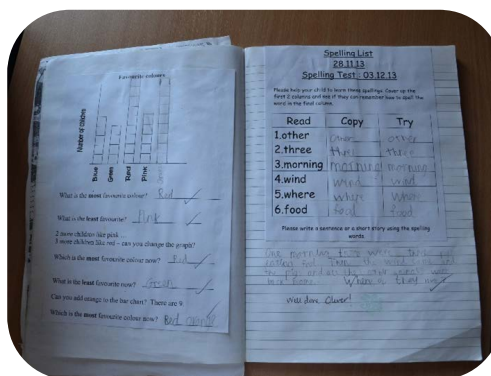 Favourite colours
Number of children
Blue
Green
Red
Pink
What is the most favourite colour? Red
What is the least favourite? Pink
2 more children like pink...
3 more children like red - can you change the graph?
Which is the most favourite colour now? Red
What is the least favourite now? Green
Can you add orange to the bar chart? There are 9.
Which is the most favourite colour now? Red orange
Spelling List
28.11.13
Spelling Test : 03.12.13
Please help your child to learn these spellings. Cover up the
first 2 columns and see if they can remember how to spell the
word in the final column.
Read Copy Try
1.other other other
2.three three three
3.morning morning morning
4.wind wind wind
5.where where where
6.food food food
Please write a sentence or a short story using the spelling
words
One morning there were three
the pig and all the other
Where is
Well done Oliver!